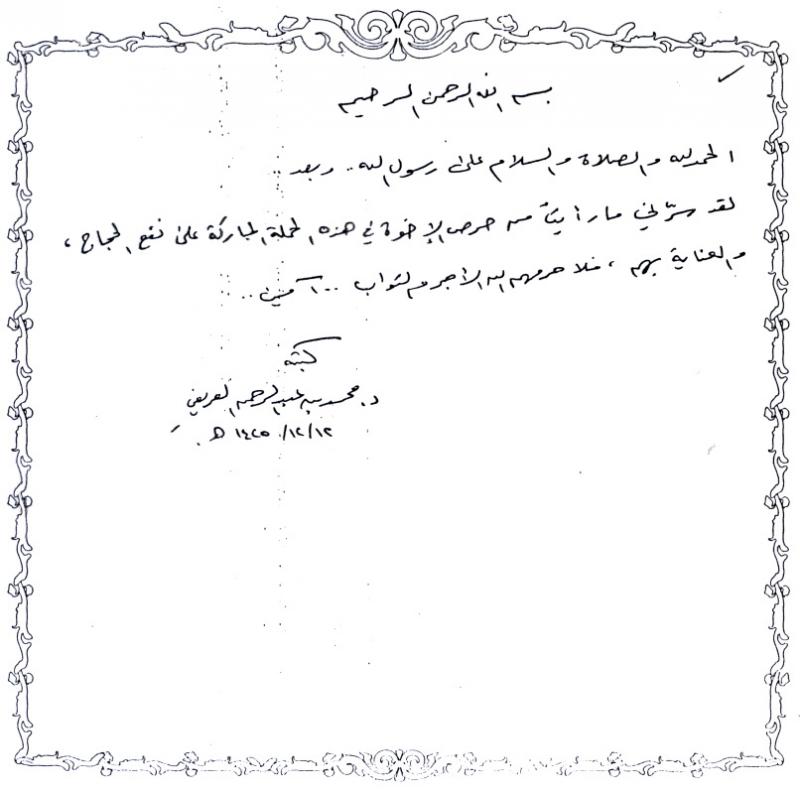 بسم الله الرحمن الرحيم
الحمد لله والصلاة والسلام على رسول الله .. وبعد ..
لقد سرّني ما رأيتُ من حرص الإخوة في هذه الحملة المباركة على نفع الحجاج ،
والعناية بهم ، فلا حرمهم الله الأجر والثواب ... آمين ..
كتبه
د. محمد بن عبدالرحمن العريفي
١٤٢٥/١٢/١٢ هـ